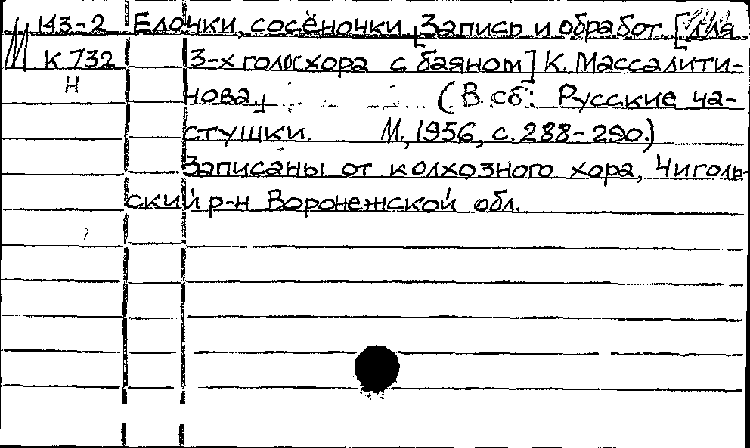 М 143-2 Елочки, сосёночки. Запись и обработ. [для
К 732 3-х голосхора с баяном] К. Массалити-
Н нова. (В сб: Русские ча-
стушки. М., 1956, с. 288-290.)
Записаны от колхозного хора, Чиголь-
ский р-н Воронежской обл.